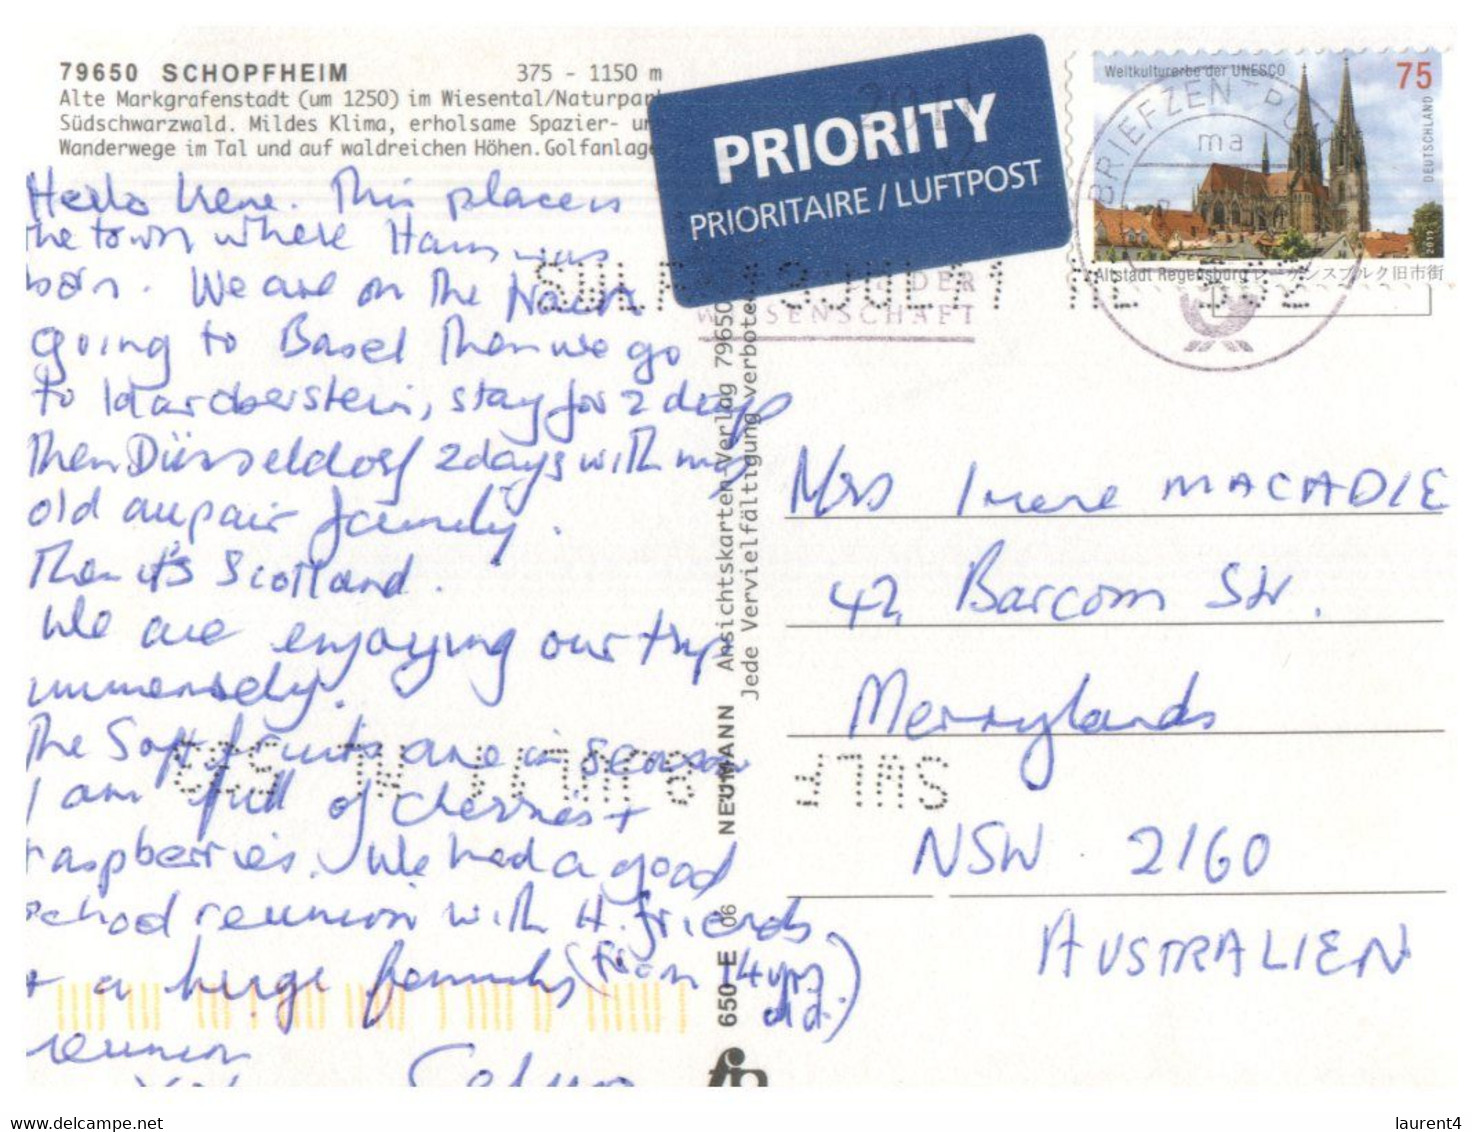 79650 SCHOPFHEIM 375 - 1150 m
Alte Markgrafenstadt (um 1250) im Wiesental/Naturpar
Südschwarzwald. Mildes Klima, erholsame Spazier- un
Wanderwege im Tal und auf waldreichen Höhen. Golfanlage
PRIORITY
PRIORITAIRE / LUFTPOST
Weltkulturerbe der UNESCO 75
DEUTSCHLAND
2011
Altstadt Regensburg レーゲンスブルク旧市街
BRIEFZENTRUM
ma
DER
WISSENSCHAFT
Hello Irene. This place is
the town where Hans was
born. We are on the
going to Basel Then we go
to stay for 2 days
Then Düsseldorf 2 days with my
old aupair family.
Then it's Scotland.
We are enjoying our trip
immensely.
The Soft fruits are in season
I am full of cherries +
raspberries. We had a good
school reunion with H. friends
+ a huge family (from 14 yrs old.)
reunion
Ansichtskarten-Verlag 79650
Jede Vervielfältigung verboten
650 - E 06 NEUMANN
Mrs Irene MACADIE
42 Barcom Str.
Merrylands
NSW. 2160
AUSTRALIEN
www.delcampe.net
laurent4